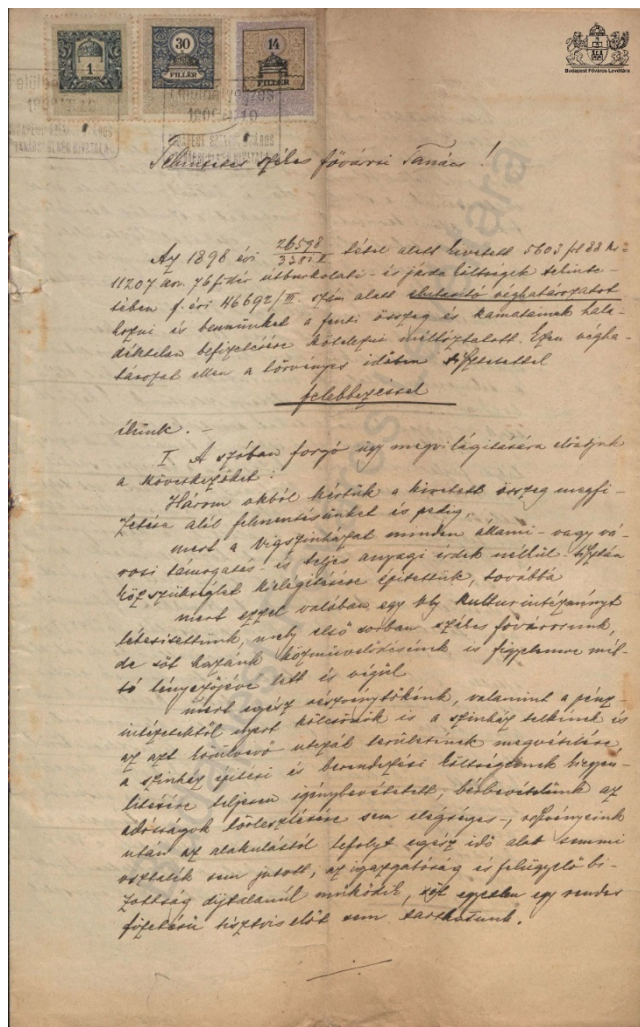 1
30
FILLÉR
14
FILLÉR
Budapest Főváros Levéltára
Tekintetes székes fővárosi Tanács!
Az 1898 évi 26598 tétel alatt kivetett 5603 frt 88 kr
11207 kor. 76 fillér útburkolati- és járda költségek tekinte-
tében f. évi 46692/III szám alatt elutasító véghatározatot
hozni és bennünket a fenti összeg és kamatainak hala-
déktalan befizetésére kötelezni méltóztatott. Ezen végha-
tározat ellen a törvényes időben tisztelettel
felebbezéssel
élünk. -
I. A szóban forgó ügy megvilágítására előadjuk
a következőket:
Három okból kértük a kivetett összeg megfi-
zetése alól felmentésünket és pedig,
mert a Vígszínházat minden állami- vagy vá-
rosi támogatás- és teljes anyagi érdek nélkül tisztán
közszükséglet kielégítésére építettük, továbbá
mert ezzel valóban egy oly kulturintézményt
létesítettünk, mely első sorban székes fővárosunk,
de sőt hazánk közművelődésének is figyelemre mél-
tó tényezőjévé lett és végül
mert egész részvénytőkénk, valamint a pénz-
intézetektől nyert kölcsönök is a színház telkének és
az azt környező utczák területének megvételére
a színház építési és berendezési költségeinek kiegyen-
lítésére teljesen igénybevétetett, bérbevételünk az
adósságok törlesztésére sem elégséges-, részvényeink
után az alakulástól lefolyt egész idő alatt semmi
osztalék sem jutott, az igazgatóság és felügyelő bi-
zottság díjtalanúl működik, sőt egyetlen egy rendes
fizetésű tisztviselőt sem tarthatunk.